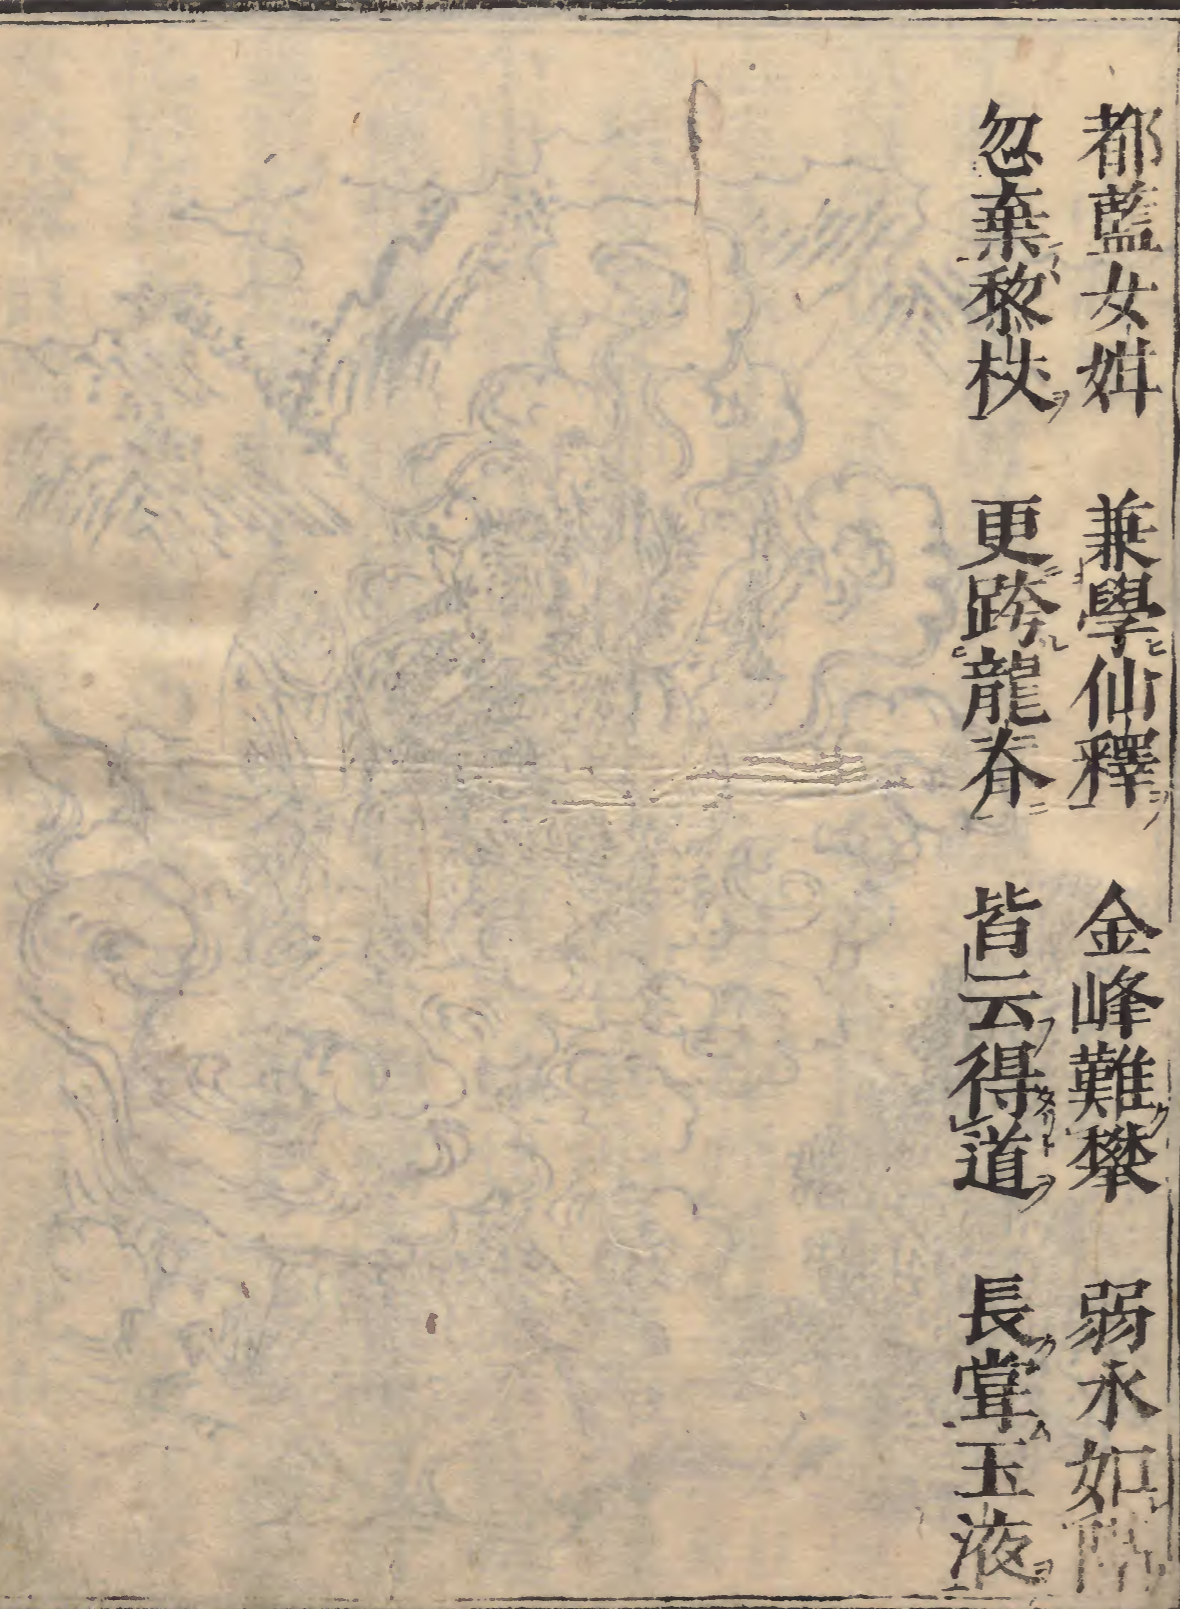 都藍女　兼學仙釋　金峰難攀　弱水如隔
忽棄黎杖　更跨龍脊　皆云得道　長甞玉液